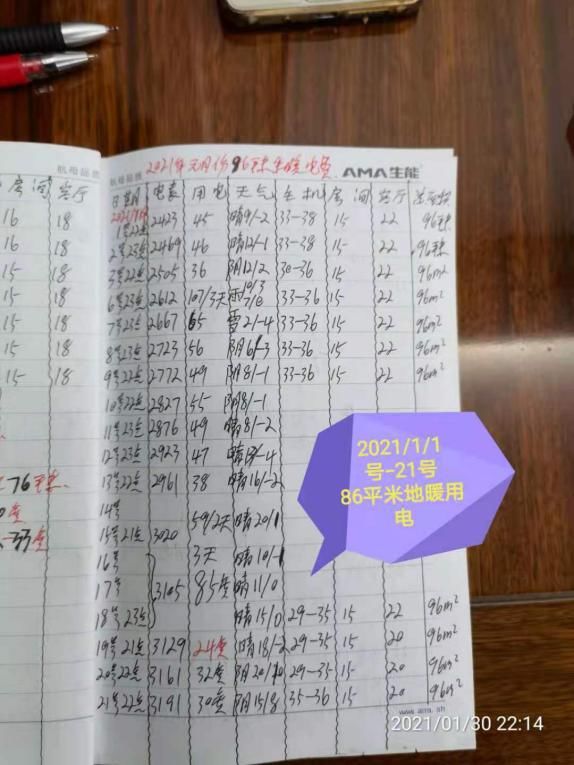 房间 客厅
16 18
16 18
15 18
15 18
15 18
15 18
15 18
76
航母品质 2021年元月份96 电费 AMA生能
日期 电表 用电 天气 主机 房间 客厅
1号22点 2423 45 晴9/-2 33-38 15 22 96
2号23点 2469 46 晴12/-1 33-38 15 22 96
3号22点 2505 36 阴12/2 30-36 15 22 96m²
6号23点 2612 107/3天 雨 33-36 15 22 96m²
7号23点 2667 65 雪2/-4 33-36 15 22 96m²
8号23点 2723 56 阴6/-3 33-36 15 22 96m²
9号22点 2772 49 阴8/-1 33-36 15 22 96m²
10号22点 2827 55 阴8/-1
11号23点 2876 49 晴8/-2
12号23点 2923 47
13号22点 2961 38 晴16/-2
14号
15号21点 3020 59/2天 晴20/1
16号 3天 晴10/-1
17号 3105 85度 晴11/0
18号23点 晴15/0 29-35 15 22 96m²
19号21点 3129 24度 晴18/-2 29-35 15 20 96m²
20号22点 3161 32度 29-35 15 20 96m²
21号22点 3191 30度 阴15/8 35-36 15 20 96m²
2021/1/1
号-21号
86平米地暖用
电
2021/01/30 22:14